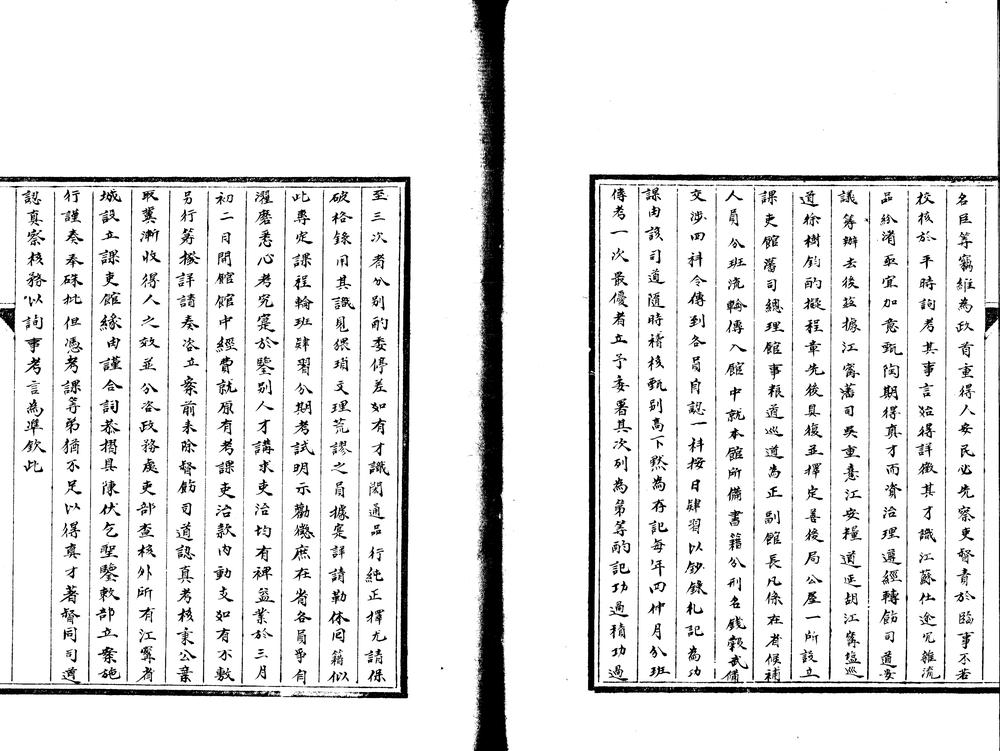 名臣等竊維為政首重得人安民必先察吏督責於臨事不若
校核於平時詢考其事言始得詳徵其才識江蘇仕途冗雜流
品紛淆亟宜加意甄陶期得真才而資治理遵經轉飭司道妥
議籌辦去後茲據江甯藩司吳重憙江安糧道延胡江甯鹽巡
道徐樹鈞酌擬程章先後具復並擇定善後局公屋一所設立
課吏館藩司總理館事糧道巡道為正副館長凡係在省候補
人員分班流輪傳入館中就本館所備書籍分刑名錢穀武備
交涉四科令傳到各員自認一科按日肄習以鈔錄札記為功
課由該司道隨時稽核甄別高下默為存記每年四仲月分班
傳考一次最優者立予委署其次列為第等酌記功過積功過
至三次者分別酌委停差如有才識閎通品行純正擇尤請保
破格錄用其識見猥瑣文理荒謬之員據實詳請勒休回籍似
此專定課程輪班肄習分期考試明示勸懲庶在省各員爭自
濯磨悉心考究寔於鑒別人才講求吏治均有裨益業於三月
初二日開館館中經費就原有考課吏治款內動支如有不敷
另行籌撥詳請奏咨立案前未除督飭司道認真考核秉公棄
取冀漸收得人之效並分咨政務處吏部查核外所有江甯省
城設立課吏館緣由謹合詞恭摺具陳伏乞聖鑒敕部立案施
行謹奏奉硃批但憑考課等第猶不足以得真才著督同司道
認真察核務以詢事考言為準欽此